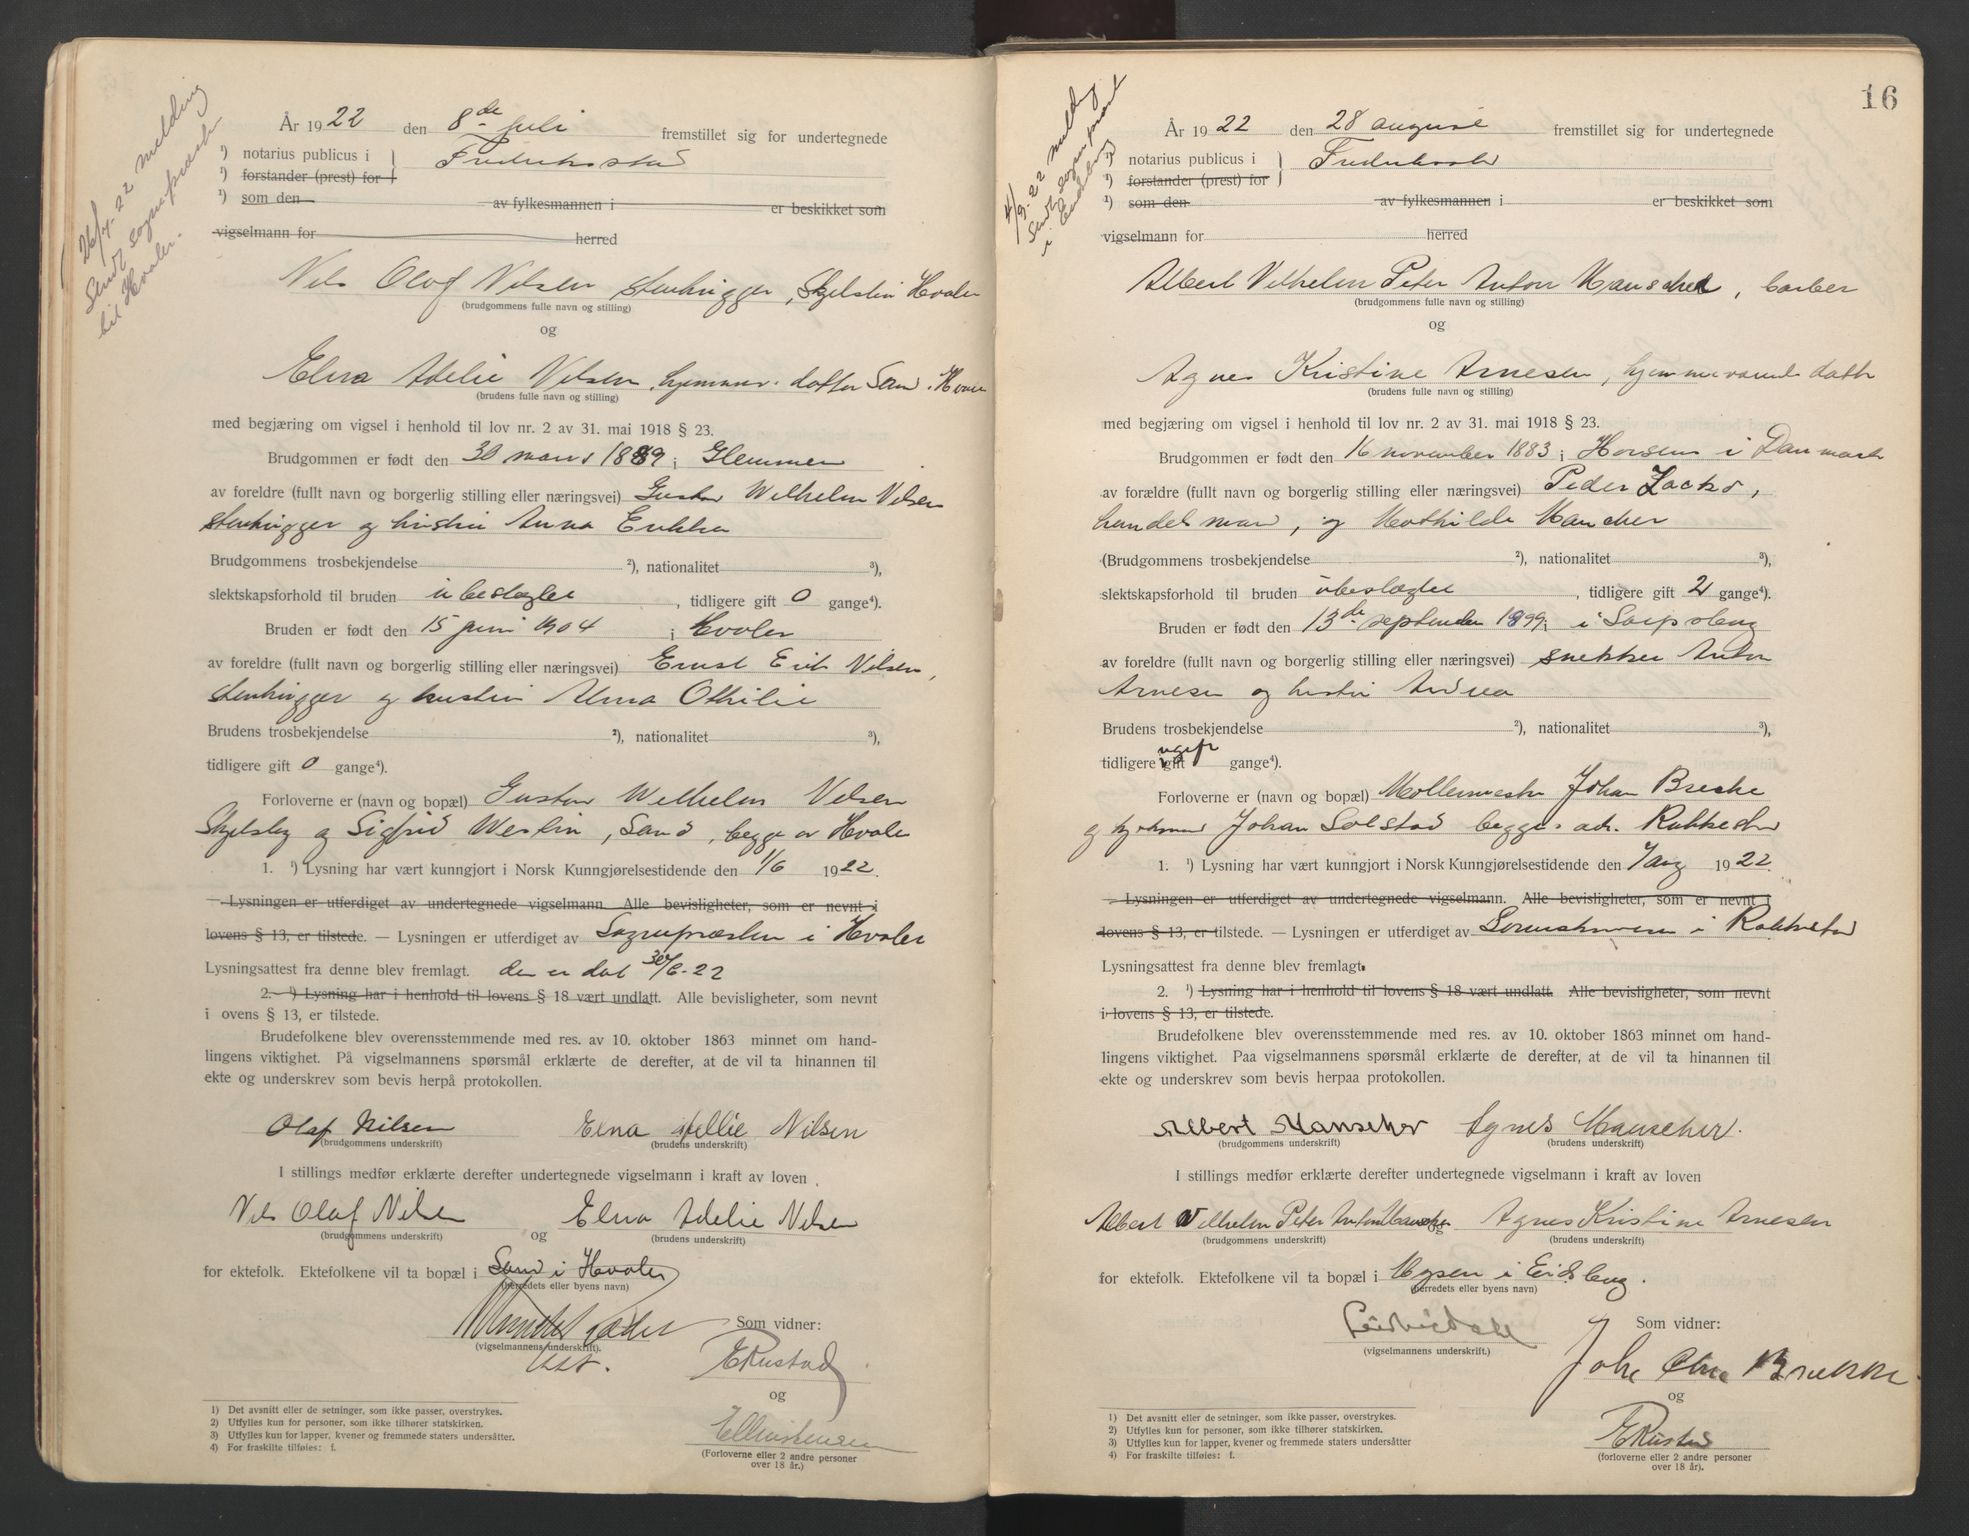 26/7. 22 melding
Sendt sognepræsten
til Hvaler.
År 1922 den 8de juli fremstillet sig for undertegnede
¹) notarius publicus i } Fredrikstad
¹) forstander (prest) for
¹) som den av fylkesmannen i er beskikket som
vigselmann for herred
Nils Olaf Nilsen stenhugger, Skjelsbu Hvaler
(brudgommens fulle navn og stilling)
og
Elna Adelie Nilsen, hjemmev. datter Sand, Hvaler
(brudens fulle navn og stilling)
med begjæring om vigsel i henhold til lov nr. 2 av 31. mai 1918 § 23.
Brudgommen er født den 30 mars 1889 i Glemmen
av foreldre (fullt navn og borgerlig stilling eller næringsvei) Gustav Wilhelm Nilsen
stenhugger og hustru Anna
Brudgommens trosbekjendelse ²), nationalitet ³),
slektskapsforhold til bruden ubeslegtet, tidligere gift 0 gange⁴).
Bruden er født den 15 juni 1904 i Hvaler
av foreldre (fullt navn og borgerlig stilling eller næringsvei) Ernst Erik Nilsen,
stenhugger og hustru Alma Othilie
Brudens trosbekjendelse ²), nationalitet ³),
tidligere gift 0 gange⁴).
Forloverne er (navn og bopæl) Gustav Wilhelm Nilsen
og Sigfrid Westin, Sand, begge av Hvaler
1. ¹) Lysning har vært kunngjort i Norsk Kunngjørelsestidende den 1/6 1922.
Lysningen er utferdiget av undertegnede vigselmann. Alle bevisligheter, som er nevnt i
lovens § 13, er tilstede. — Lysningen er utferdiget av Sognepræsten i Hvaler
Lysningsattest fra denne blev fremlagt. den er dat 30/6-22
2. ¹) Lysning har i henhold til lovens § 18 vært undlatt. Alle bevisligheter, som nevnt
i ovens § 13, er tilstede.
Brudefolkene blev overensstemmende med res. av 10. oktober 1863 minnet om hand-
lingens viktighet. På vigselmannens spørsmål erklærte de derefter, at de vil ta hinannen til
ekte og underskrev som bevis herpå protokollen.
Olaf Nilsen Elna Adellie Nilsen
(brudgommens underskrift) (brudens underskrift)
I stillings medfør erklærte derefter undertegnede vigselmann i kraft av loven
Nils Olaf Nilsen og Elna Adelie Nilsen
(brudgommens underskrift) (brudens underskrift)
for ektefolk. Ektefolkene vil ta bopæl i Sand i Hvaler
(herredets eller byens navn)
Som vidner:
(vigselmannens underskrift).
E Rustad
og
E Christensen
(Forloverne eller 2 andre personer
over 18 år.)
1) Det avsnitt eller de setninger, som ikke passer, overstrykes.
2) Utfylles kun for personer, som ikke tilhører statskirken.
3) Utfylles kun for lapper, kvener og fremmede staters undersåtter.
4) For fraskilte tilføies: f.
16
4/9-22 melding
Sendt sognepræst
i Eidsberg
År 1922 den 28 august fremstillet sig for undertegnede
¹) notarius publicus i } Fredrikstad
¹) forstander (prest) for
¹) som den av fylkesmannen i er beskikket som
vigselmann for herred
Albert Vilhelm Peter Anton Manscher, barber
(brudgommens fulle navn og stilling)
og
Agnes Kristine Arnesen, hjemmeværende datter
(brudens fulle navn og stilling)
med begjæring om vigsel i henhold til lov nr. 2 av 31. mai 1918 § 23.
Brudgommen er født den 16 november 1883 i Horsens i Danmark
av forældre (fullt navn og borgerlig stilling eller næringsvei) Peder
handelsmand, og Mathilde Mancher
(Brudgommens trosbekjendelse ²), nationalitet ³),
slektskapsforhold til bruden ubeslægtet, tidligere gift 2 gange⁴).
Bruden er født den 13de september 1899 i i Sarpsborg
av foreldre (fullt navn og borgerlig stilling eller næringsvei) snekker Anton
Arnesen og hustru Andrea
Brudens trosbekjendelse ²), nationalitet ³),
tidligere ugift gift gange⁴).
Forloverne er (navn og bopæl) Møllemester Johan Brekke
og Johan Solstad begge adr. Rakkestad
1. ¹) Lysning har vært kunngjort i Norsk Kunngjørelsestidende den 7 aug 1922.
Lysningen er utferdiget av undertegnede vigselmann. Alle bevisligheter, som er nevnt i
lovens § 13, er tilstede. — Lysningen er utferdiget av Sorenskriveren i Rakkestad
Lysningsattest fra denne blev fremlagt.
2. ¹) Lysning har i henhold til lovens § 18 vært undlatt. Alle bevisligheter, som nevnt
i lovens § 13, er tilstede.
Brudefolkene blev overensstemmende med res. av 10. oktober 1863 minnet om hand-
lingens viktighet. Paa vigselmannens spørsmål erklærte de derefter, at de vil ta hinannen til
ekte og underskrev som bevis herpaa protokollen.
Albert Manscher Agnes Manscher.
(brudgommens underskrift) (brudens underskrift)
I stillings medfør erklærte derefter undertegnede vigselmann i kraft av loven
Albert Vilhelm Peter Anton Manscher og Agnes Kristine Arnesen
(brudgommens underskrift) (brudens underskrift)
for ektefolk. Ektefolkene vil ta bopæl i Mysen i Eidsberg.
(herredets eller byens navn)
Som vidner:
(vigselmannens underskrift.)
Brekke
og
E Rustad
(forloverne eller 2 andre personer
over 18 år).
1) Det avsnitt eller de setninger, som ikke passer, overstrykes.
2) Utfylles kun for personer, som ikke tilhører statskirken.
3) Utfylles kun for lapper, kvener og fremmede staters undersåtter
4) For fraskilte tilføies: f.